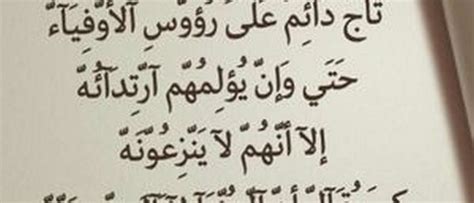 تاج دائم على رؤوس الأوفياء
حتي وإن يؤلمهم آرتدآئه
إلآ أنهم لآ ينزعونه